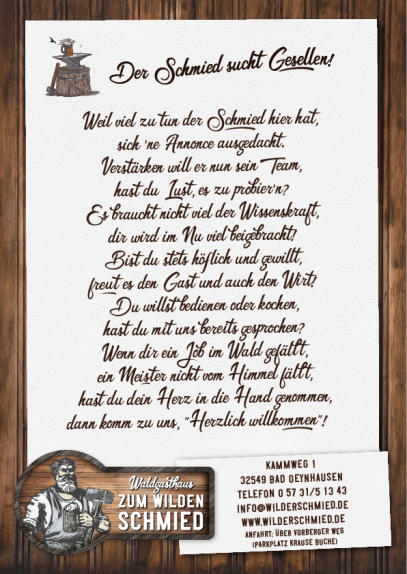 Der Schmied sucht Gesellen!
Weil viel zu tun der Schmied hier hat,
sich 'ne Annonce ausgedacht.
Verstärken will er nun sein Team,
hast du Lust, es zu probier'n?
Es braucht nicht viel der Wissenskraft,
dir wird im Nu viel beigebracht!
Bist du stets höflich und gewillt,
freut es den Gast und auch den Wirt!
Du willst bedienen oder kochen,
hast du mit uns bereits gesprochen?
Wenn dir ein Job im Wald gefällt,
ein Meister nicht vom Himmel fällt,
hast du dein Herz in die Hand genommen,
dann komm zu uns, "Herzlich willkommen"!
Waldgasthaus
ZUM WILDEN
SCHMIED
KAMMWEG 1
32549 BAD OEYNHAUSEN
TELEFON 0 57 31/5 13 43
INFO@WILDERSCHMIED.DE
WWW.WILDERSCHMIED.DE
ANFAHRT: ÜBER VORBERGER WEG
(PARKPLATZ KRAUSE BUCHE)